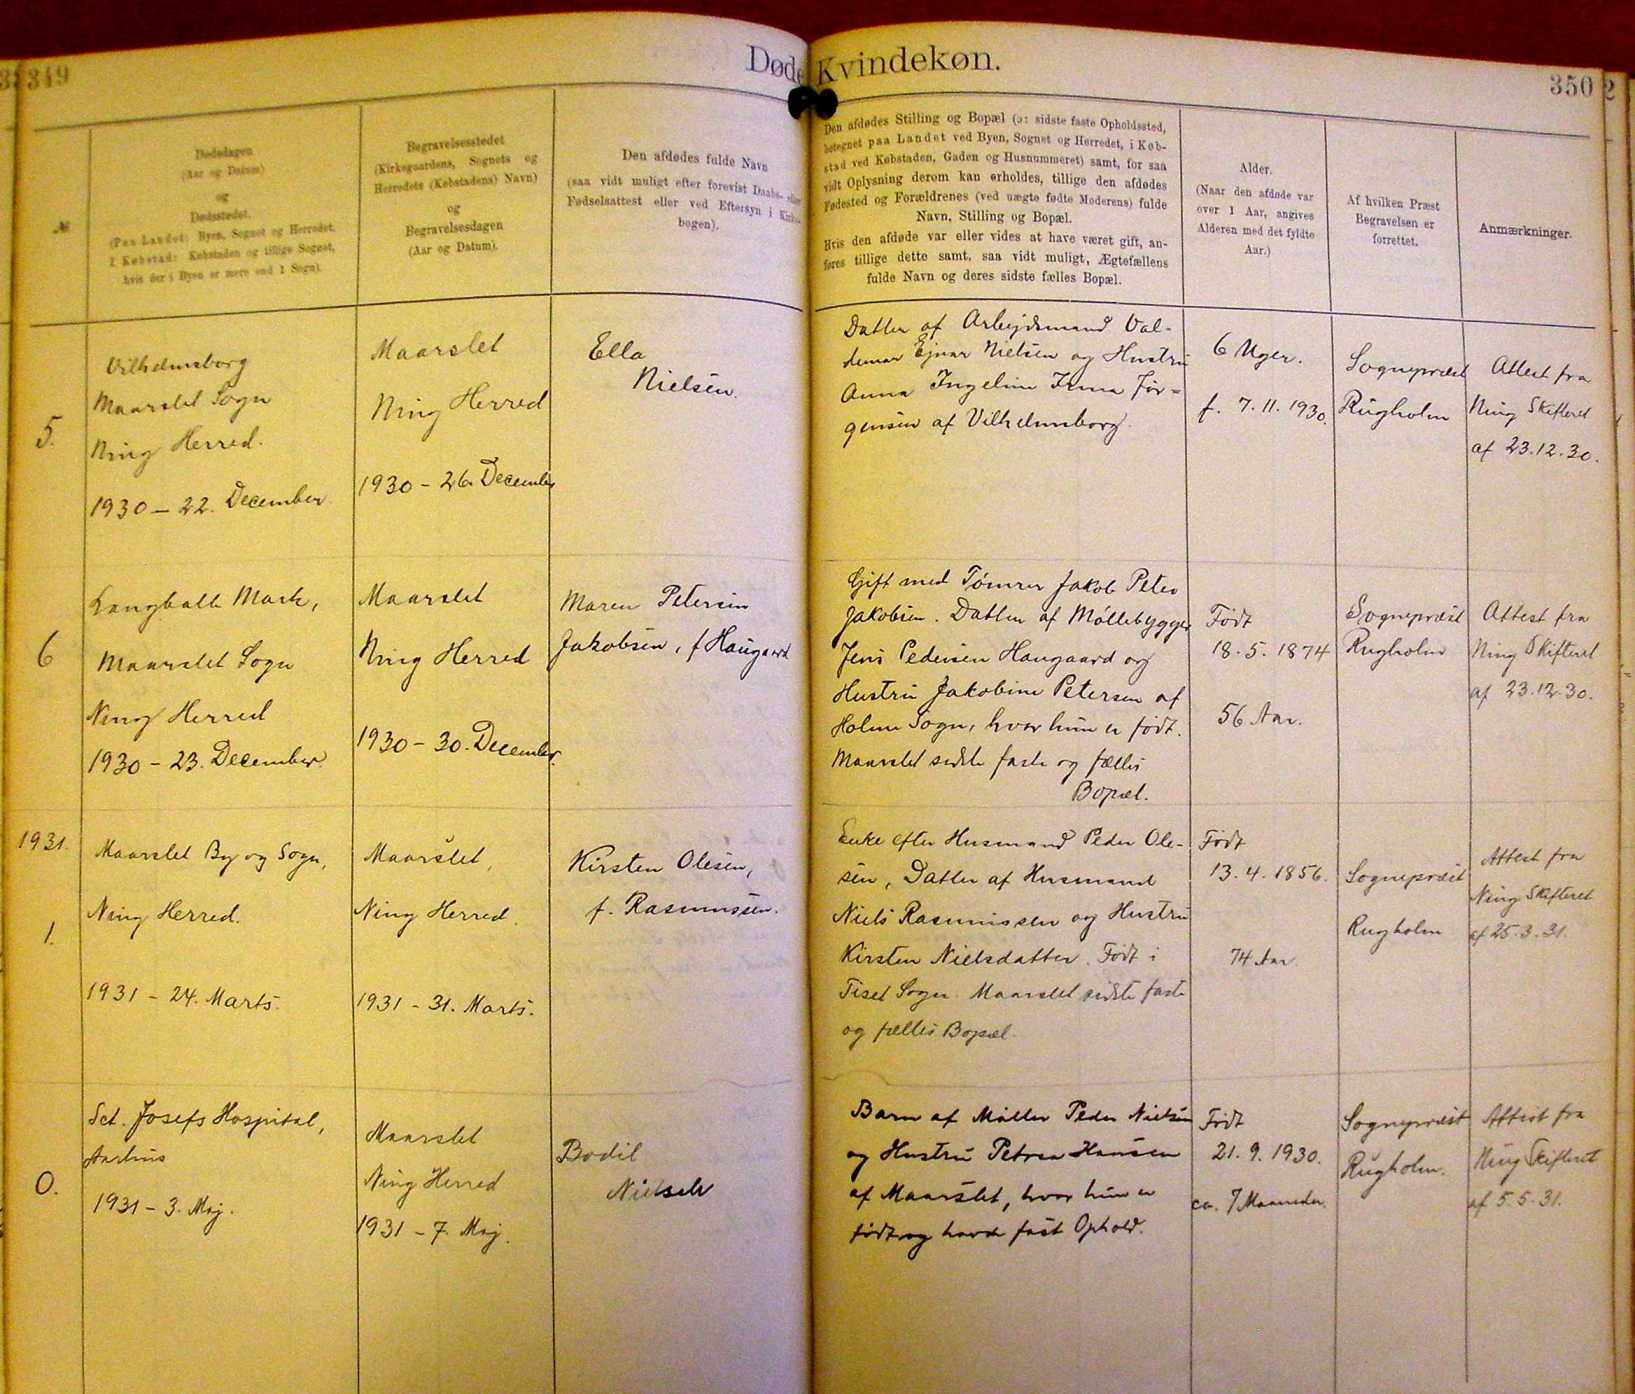 349
Døde Kvindekøn.
350
2
№
Dødsdagen
(Aar og Datum)
og
Dødsstedet.
(Paa Landet: Byen, Sognet og Herredet.
I Købstad: Købstaden og tillige Sognet,
hvis der i Byen er mere end 1 Sogn).
Begravelsesstedet
(Kirkegaardens, Sognets og
Herredets (Købstadens) Navn)
og
Begravelsesdagen
(Aar og Datum).
Den afdødes fulde Navn
(saa vidt muligt efter forevist Daabs- eller
Fødselsattest eller ved Eftersyn i Kirke-
bogen).
Den afdødes Stilling og Bopæl (ɔ: sidste faste Opholdssted,
betegnet paa Landet ved Byen, Sognet og Herredet, i Køb-
stad ved Købstaden, Gaden og Husnummeret) samt, for saa
vidt Oplysning derom kan erholdes, tillige den afdødes
Fødested og Forældrenes (ved uægte fødte Moderens) fulde
Navn, Stilling og Bopæl.
Hvis den afdøde var eller vides at have været gift, an-
føres tillige dette samt, saa vidt muligt, Ægtefællens
fulde Navn og deres sidste fælles Bopæl.
Alder.
(Naar den afdøde var
over 1 Aar, angives
Alderen med det fyldte
Aar.)
Af hvilken Præst
Begravelsen er
forrettet.
Anmærkninger.
5.
Vilhelmsborg
Maarslet Sogn
Ning Herred.
1930 – 22. December
Maarslet
Ning Herred
1930 – 26. December
Ella
Nielsen.
Datter af Arbejdsmand Val-
demar Ejnar Nielsen og Hustru
Anna Ingeline Irma Jør=
gensen af Vilhelmsborg.
6 Uger.
f. 7.11.1930.
Sognepræst
Rugholm
Attest fra
Ning Skifteret
af 23.12.30.
6
Langballe Mark,
Maarslet Sogn
Ning Herred
1930 – 23. December.
Maarslet
Ning Herred
1930 – 30. December.
Maren Petersen
Jakobsen, f Haugaard
Gift med Tømrer Jakob Peter
Jakobsen. Datter af Møllebygger
Jens Pedersen Haugaard og
Hustru Jakobine Petersen af
Holme Sogn, hvor hun er født.
Maarslet sidste faste og fælles
Bopæl.
Født
18.5.1874
56 Aar.
Sognepræst
Rugholm
Attest fra
Ning Skifteret
af 23.12.30.
1931.
1.
Maarslet By og Sogn,
Ning Herred.
1931 – 24. Marts.
Maarslet,
Ning Herred.
1931 – 31. Marts.
Kirsten Olesen,
f. Rasmussen.
Enke efter Husmand Peder Ole-
sen, Datter af Husmand
Niels Rasmussen og Hustru
Kirsten Nielsdatter. Født i
Tiset Sogn. Maarslet sidste faste
og fælles Bopæl.
Født
13.4.1856.
74 Aar.
Sognepræst
Rugholm
Attest fra
Ning Skifteret
af 25.3.31.
0.
Sct. Josefs Hospital,
Aarhus
1931 – 3. Maj.
Maarslet
Ning Herred
1931 – 7. Maj.
Bodil
Nielsen
Barn af Møller Peder Nielsen
og Hustru Petrea Hansen
af Maarslet, hvor hun er
født og havde fast Ophold.
Født
21.9.1930.
ca. 7 Maaneder.
Sognepræst
Rugholm.
Attest fra
Ning Skifteret
af 5.5.31.